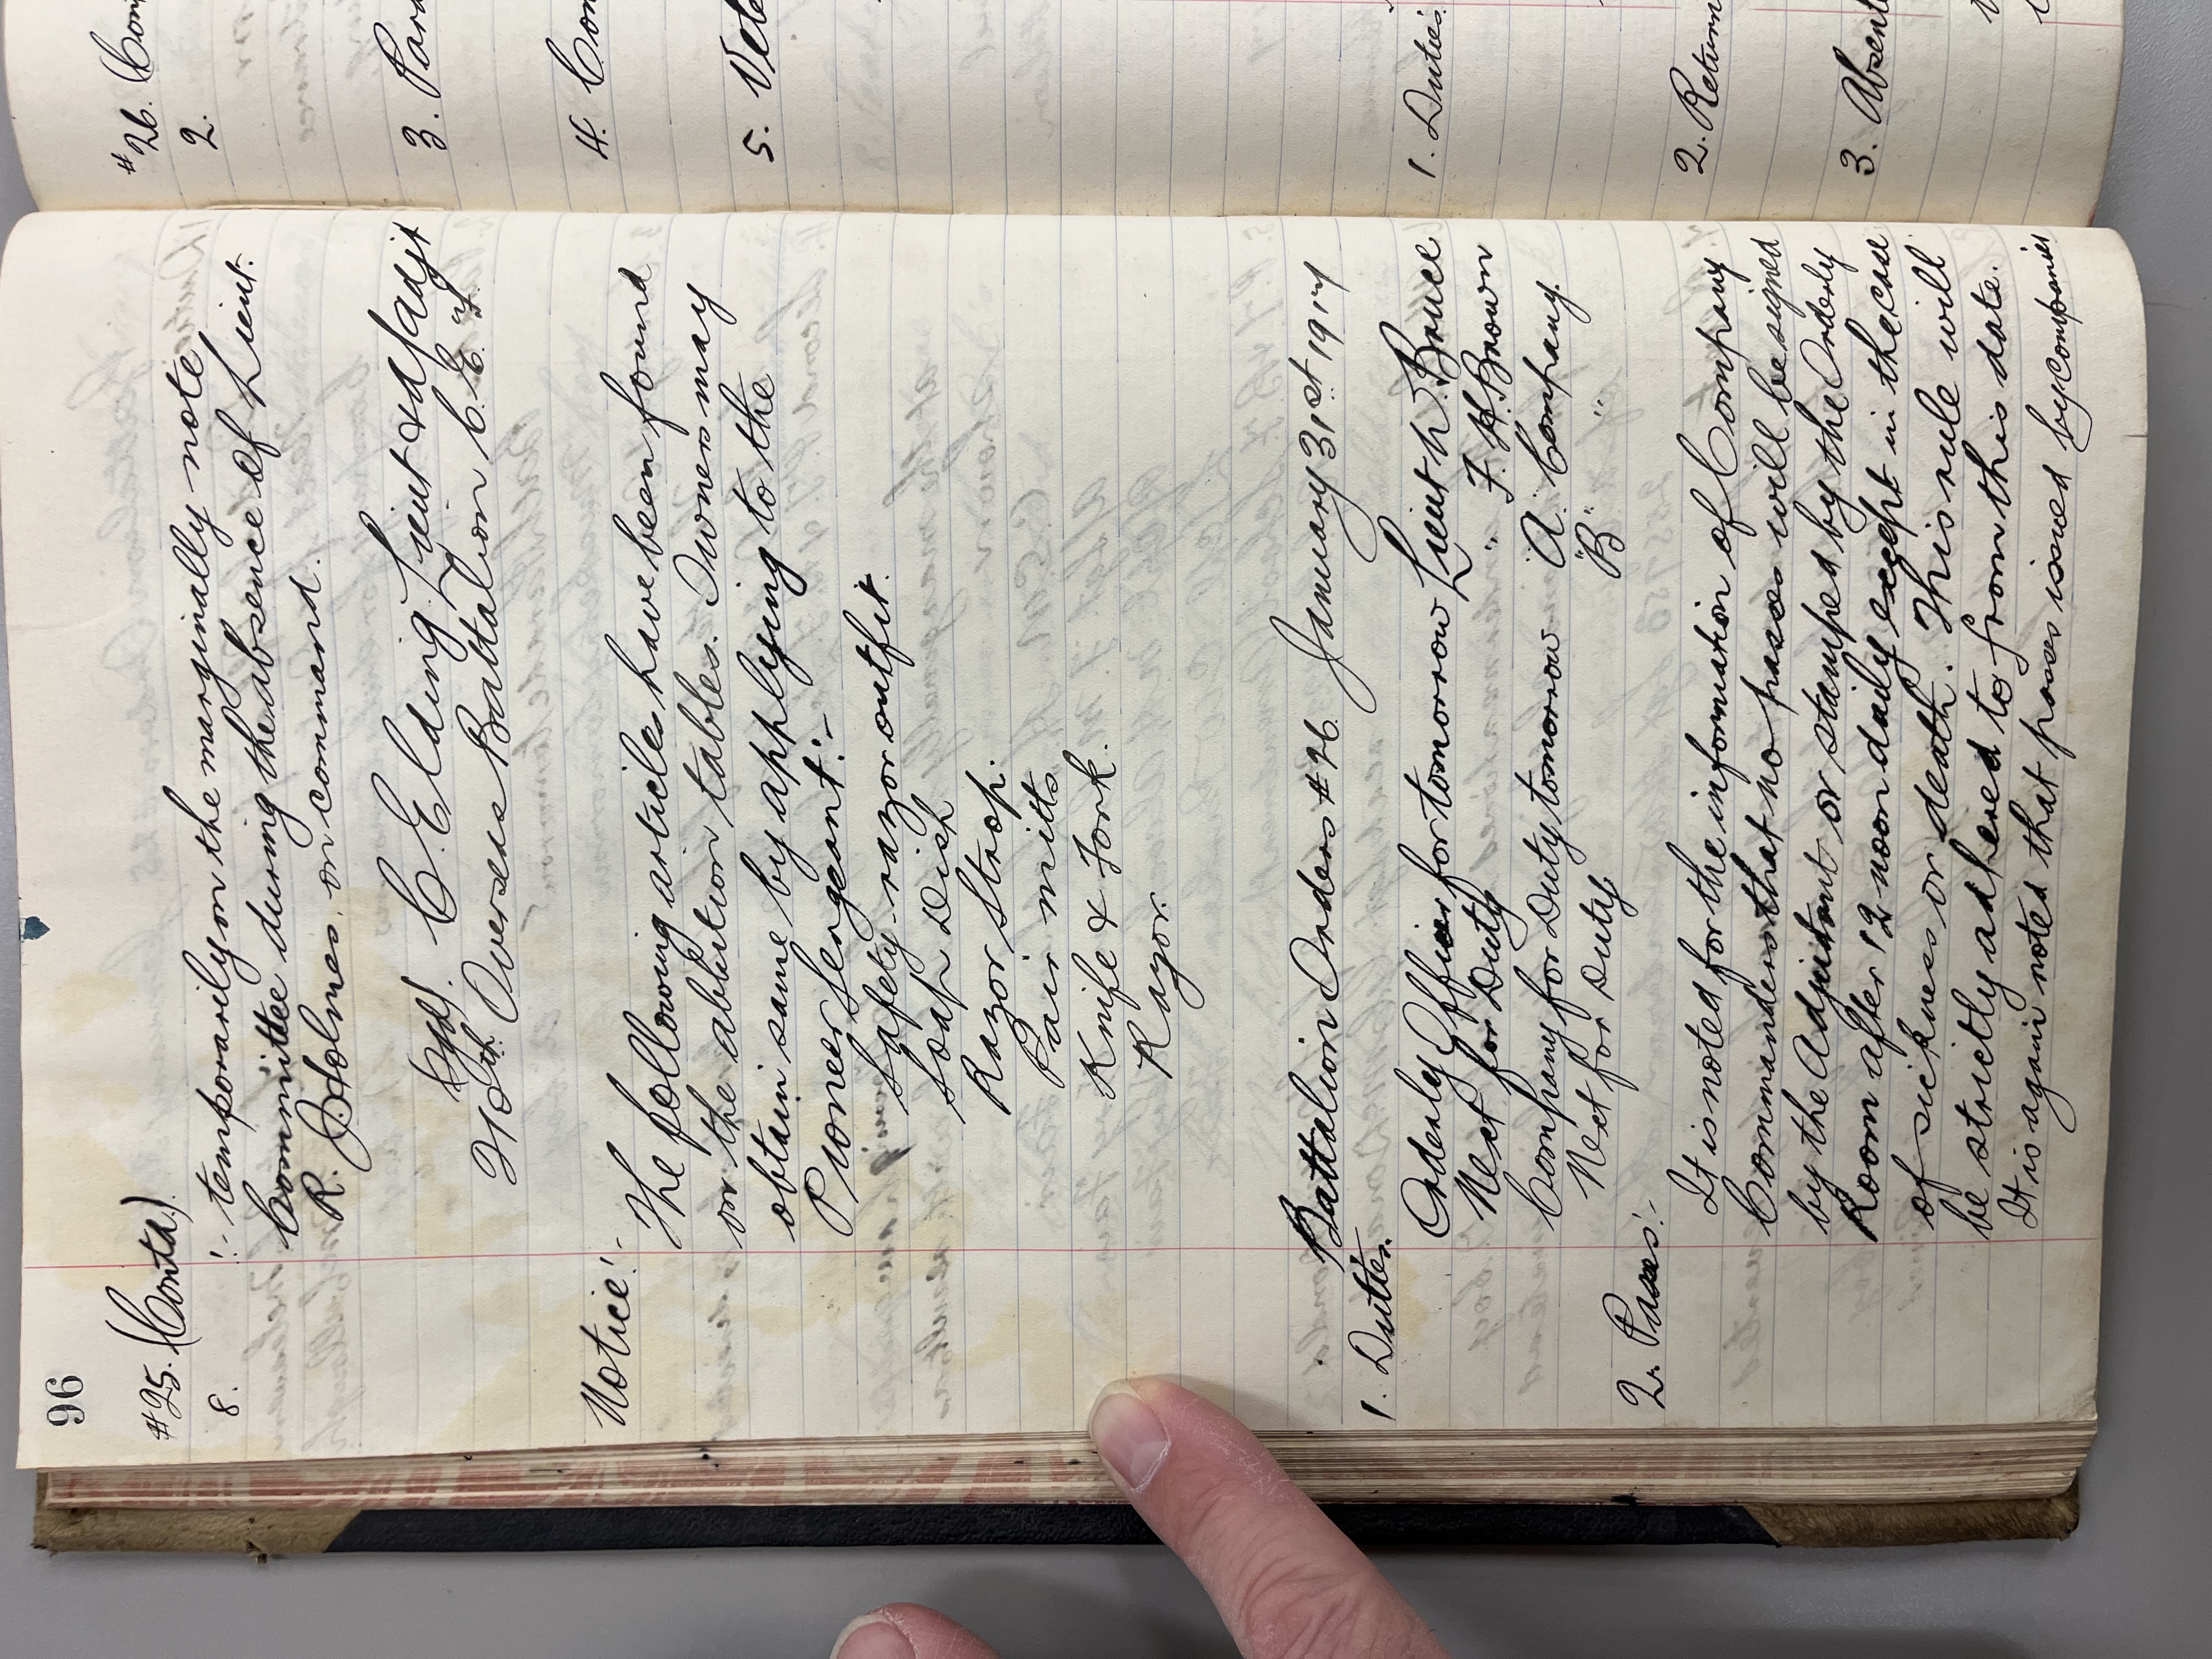 96
#25. (Contd.)
8. :- temporarily on the marginally note
Committee during the absence of Lieut.
R. Holmes, on command.
Sgd. C. E. Lading Lieut & A/Adjt
Overseas Battalion C. E. F.
Notice:-
The following articles have been found
on the ablution tables. Owners may
obtain same by applying to the
Pioneer Sergeant:-
Safety-razor outfit.
Soap Dish
Razor Strop.
Pair mitts
Knife & Fork.
Razor.
Battalion Orders #26. January 31st 1917
1. Duties.
Orderly Officer for tomorrow Lieut W. Bruce
Next for Duty " F. H. Brown
Company for Duty tomorrow "A" Company.
Next for Duty "B" "
2. Passes:-
It is noted for the information of Company
Commanders that no passes will be signed
by the Adjutant or stamped by the Orderly
Room after 12 noon daily except in the case
of sickness or death. This rule will
be strictly adhered to from this date.
It is again noted that passes issued by Companies
#26. (Con
2.
3. Para
4. Con
5. Vete
1. Duties
2. Return
3. Absent